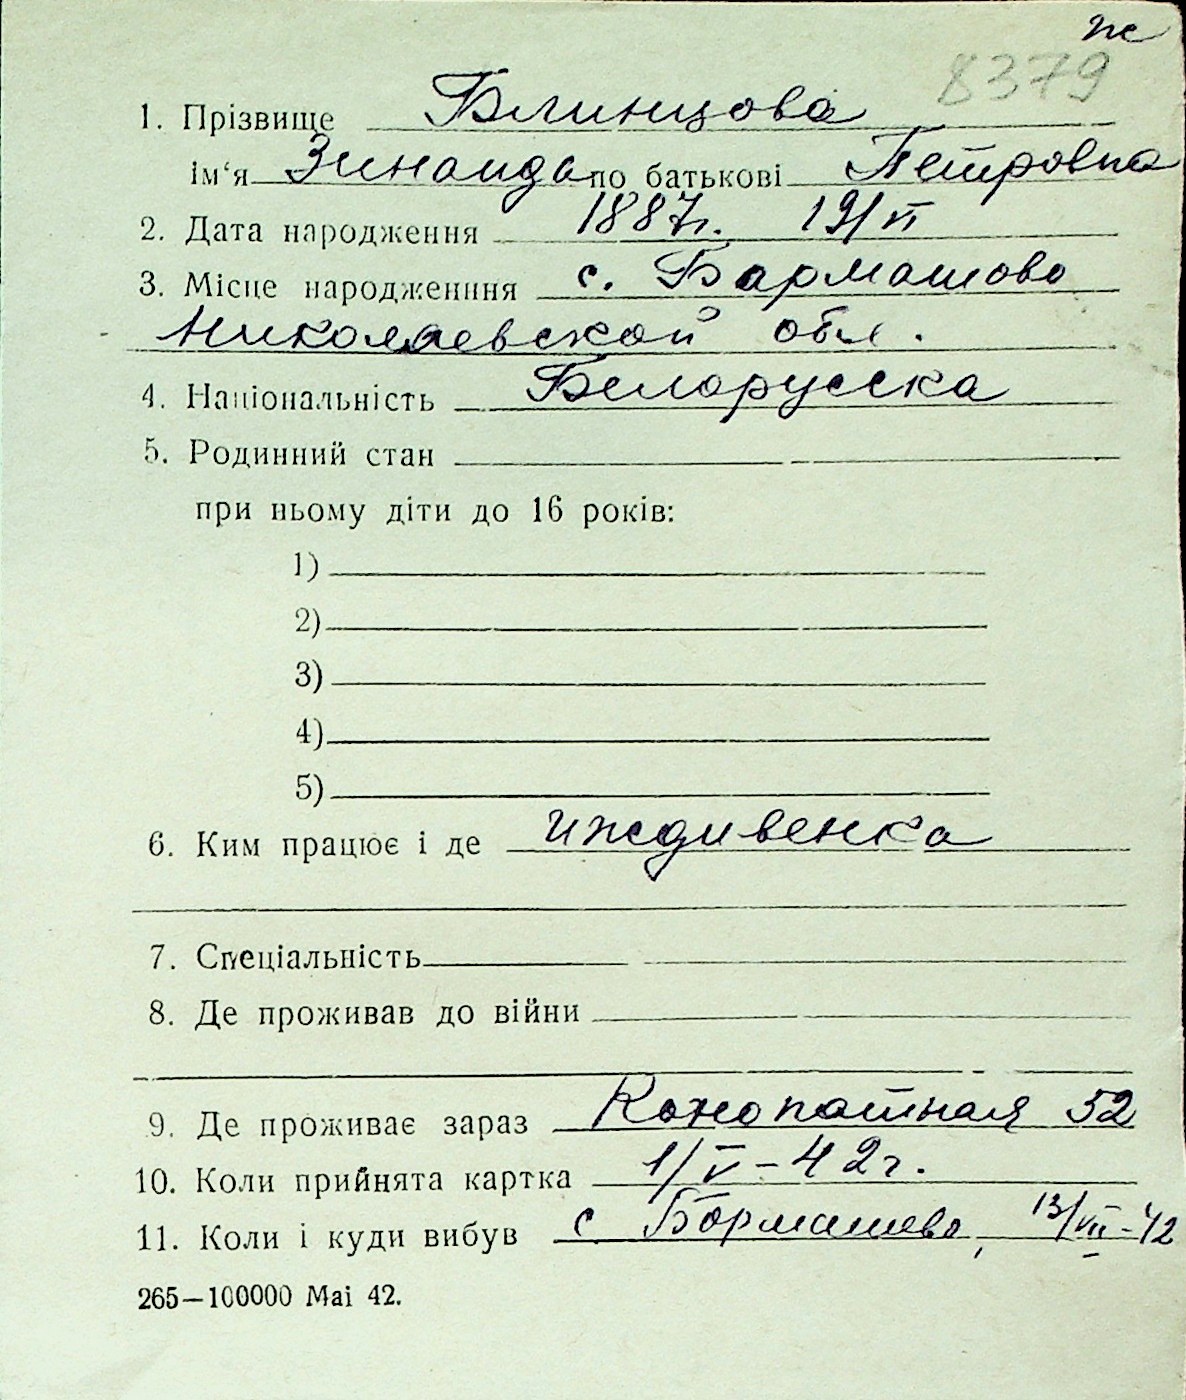 ж
8379
1. Прізвище Блинцова
ім‘я Зинаида по батькові Петровна
2. Дата народження 1887г. 19/VI
3. Місце народженння с. Бармашово
Николаевской обл.
4. Національність Белорусска
5. Родинний стан
при ньому діти до 16 років:
1)
2)
3)
4)
5)
6. Ким працює і де иждивенка
7. Спеціальність
8. Де проживав до війни
9. Де проживає зараз Конопатная 52
10. Коли прийнята картка 1/V-42г.
11. Коли і куди вибув с Бормашево, 13/VII-42
265—100000 Mai 42.